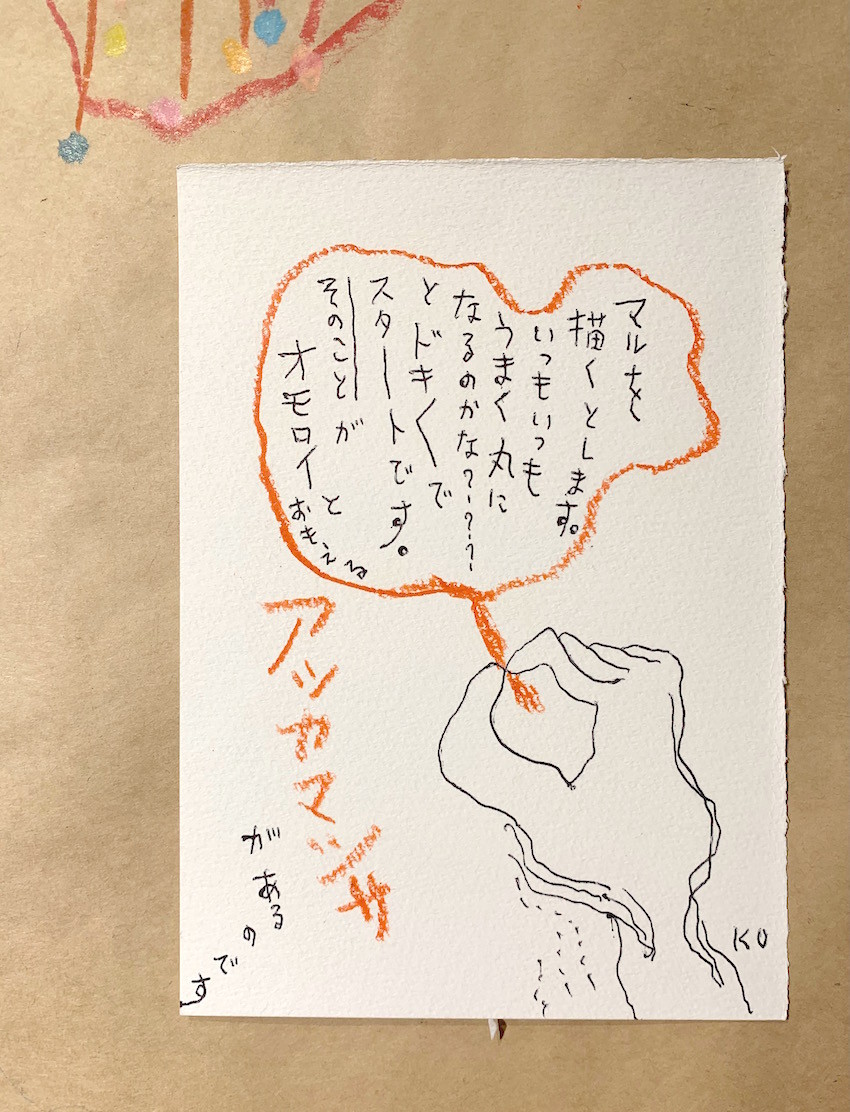 マルを
描くとします。
いつもいつも
うまく丸に
なるのかな????
とドキ〱で
スタートです。
そのことが
オモロイと
おもえる
アツカマシサ
があるのです
KO